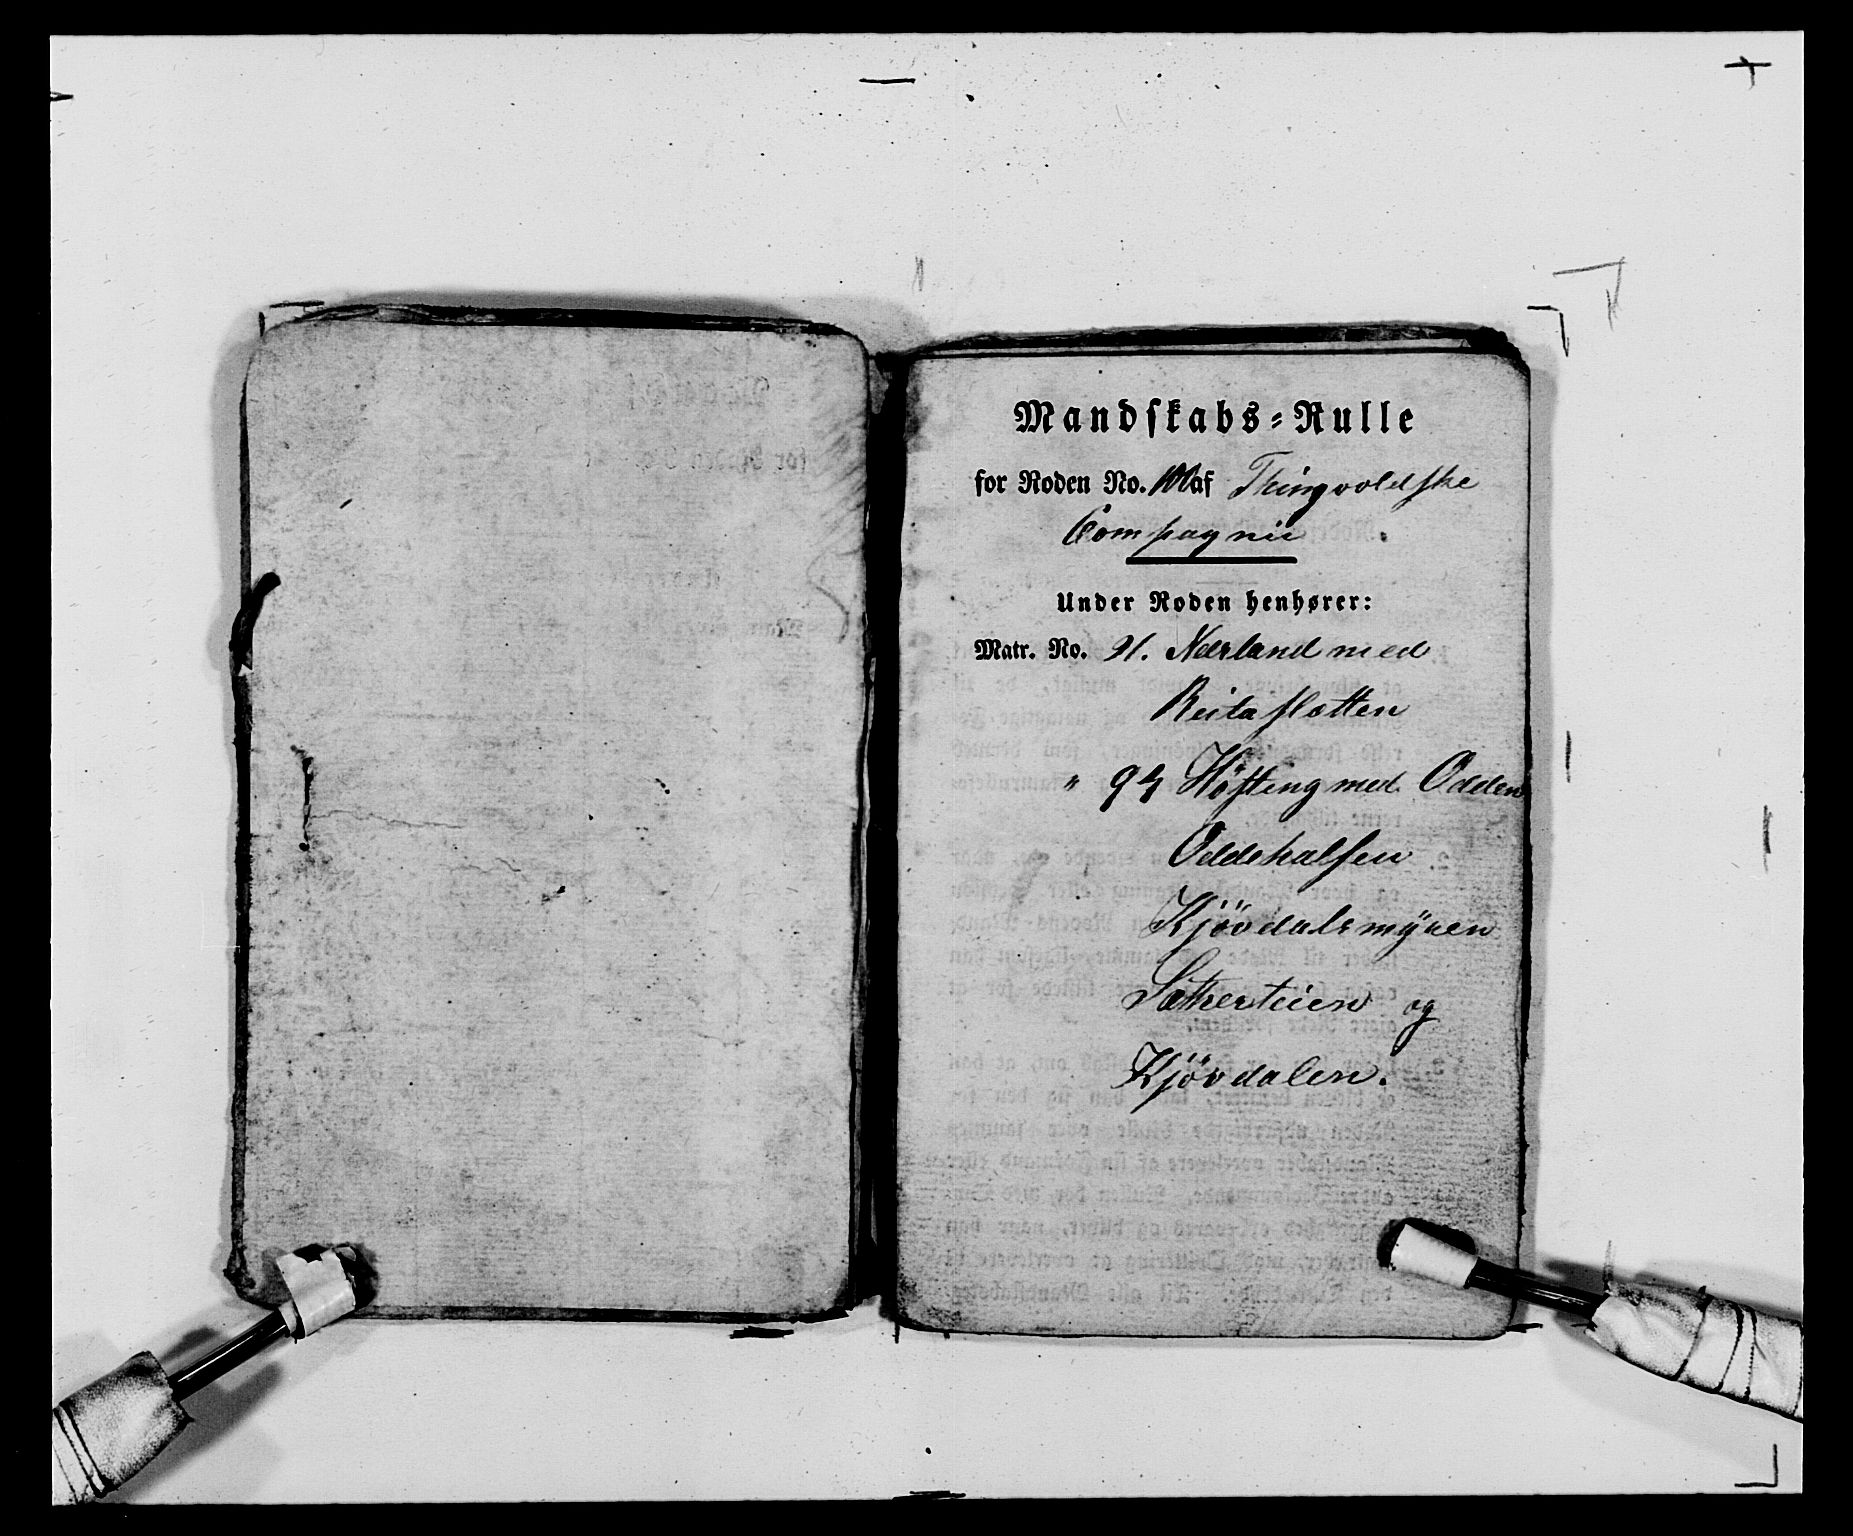 Mandskabs-Rulle
for Roden No. 100 af Thingvoldske
Compagnie
Under Roden henhører:
Matr. No. 91. Nærland med
Reitaslotten
" 94 Høsteng med Odden
Oddehalsen
Kjövdalsmÿren
Sætherteien og
Kjövdalen.